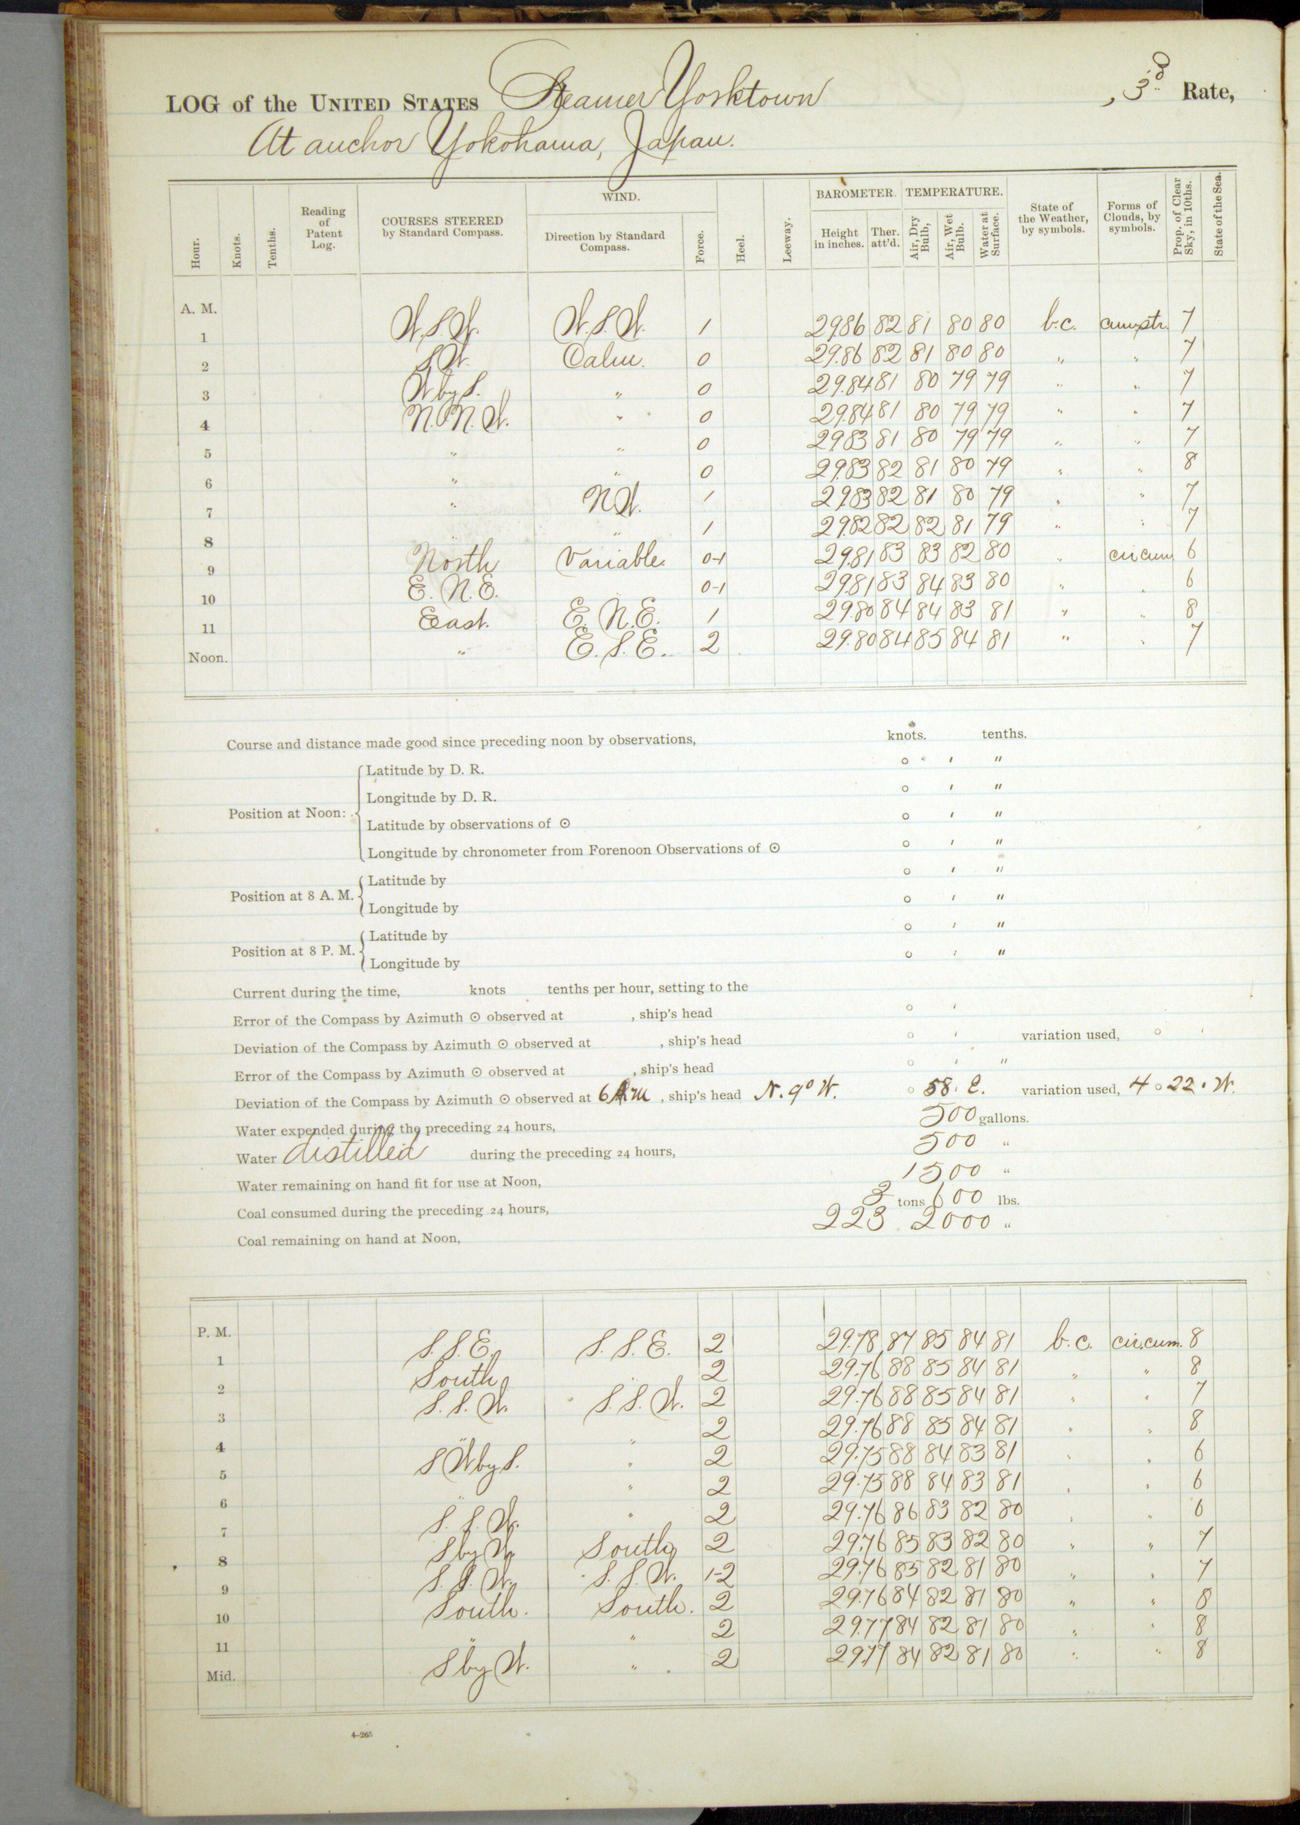 LOG of the UNITED STATES Steamer Yorktown, 3d Rate,
At anchor Yokohama, Japan.
Hour. Knots. Tenths. Reading of Patent Log. COURSES STEERED by Standard Compass. WIND. Direction by Standard Compass. Force. Heel. Leeway. BAROMETER. Height in inches. Ther. att'd. TEMPERATURE. Air, Dry Bulb, Air, Wet Bulb. Water at Surface. State of the Weather, by symbols. Forms of Clouds, by symbols. Prop. of Clear Sky, in 10ths. State of the Sea.
A. M.
1 W.S.W. W.S.W. 1 29.86 82 81 80 80 b.c. cum.str. 7
2 S.W. Calm. 0 29.86 82 81 80 80 " " 7
3 W by S. " 0 29.84 81 80 79 79 " " 7
4 N.N.W. " 0 29.84 81 80 79 79 " " 7
5 " " 0 29.83 81 80 79 79 " " 7
6 " " 0 29.83 82 81 80 79 " " 8
7 " N.W. 1 29.83 82 81 80 79 " " 7
8 " " 1 29.82 82 82 81 79 " " 7
9 North Variable. 0-1 29.81 83 83 82 80 " cir.cum 6
10 E.N.E. 0-1 29.81 83 84 83 80 " " 6
11 East. E.N.E. 1 29.80 84 84 83 81 " " 8
Noon. " E.S.E. 2 29.80 84 85 84 81 " " 7
Course and distance made good since preceding noon by observations, knots. tenths.
Position at Noon: Latitude by D. R. ° ′ ″
Longitude by D. R. ° ′ ″
Latitude by observations of ☉ ° ′ ″
Longitude by chronometer from Forenoon Observations of ☉ ° ′ ″
Position at 8 A. M. Latitude by ° ′ ″
Longitude by ° ′ ″
Position at 8 P. M. Latitude by ° ′ ″
Longitude by ° ′ ″
Current during the time, knots tenths per hour, setting to the
Error of the Compass by Azimuth ☉ observed at , ship's head ° ′
Deviation of the Compass by Azimuth ☉ observed at , ship's head ° ′ variation used, ° ′
Error of the Compass by Azimuth ☉ observed at , ship's head ° ′ ″
Deviation of the Compass by Azimuth ☉ observed at 6 A.M., ship's head N. 9° W. ° 58′ E. variation used, 4° 22′ W.
Water expended during the preceding 24 hours, 500 gallons.
Water distilled during the preceding 24 hours, 500 "
Water remaining on hand fit for use at Noon, 1500 "
Coal consumed during the preceding 24 hours, 3 tons 600 lbs.
Coal remaining on hand at Noon, 223 2000 "
P. M.
1 S.S.E. S.S.E. 2 29.78 87 85 84 81 b.c. cir.cum. 8
2 South " 2 29.76 88 85 84 81 " " 8
3 S.S.W. S.S.W. 2 29.76 88 85 84 81 " " 7
4 " " 2 29.76 88 85 84 81 " " 8
5 SW by S. " 2 29.75 88 84 83 81 " " 6
6 " " 2 29.75 88 84 83 81 " " 6
7 S.S.W. " 2 29.76 86 83 82 80 " " 6
8 S by W. South 2 29.76 85 83 82 80 " " 7
9 S.S.W. S.S.W. 1-2 29.76 85 82 81 80 " " 7
10 South. South. 2 29.76 84 82 81 80 " " 8
11 " " 2 29.77 84 82 81 80 " " 8
Mid. S by W. " 2 29.77 84 82 81 80 " " 8
4-265